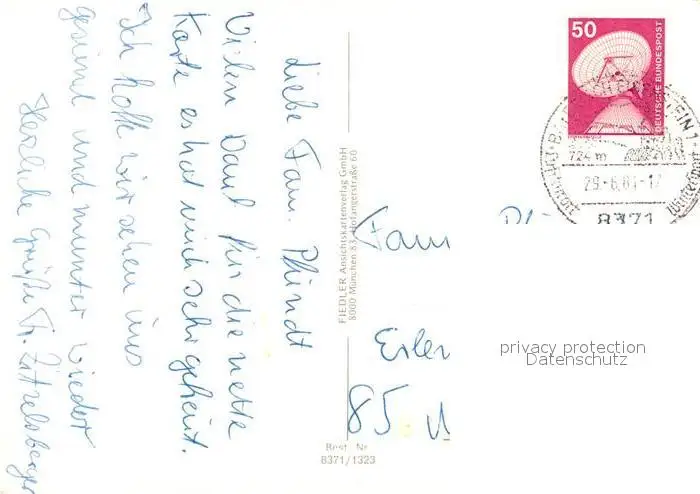 Liebe Fam. Pfündt
Vielen Dank für die nette
Karte es hat mich sehr gefreut.
Ich hoffe wir sehen uns
gesund und munter wieder
Herzliche Grüße Fr. Zitzelsberger
FIEDLER Ansichtskartenverlag GmbH
8000 München 83, Hofangerstraße 60
Fam
Eiler
85
Best. Nr.
8371/1323
50
DEUTSCHE BUNDESPOST
724 m
29.-6.81-17
8371
privacy protection
Datenschutz